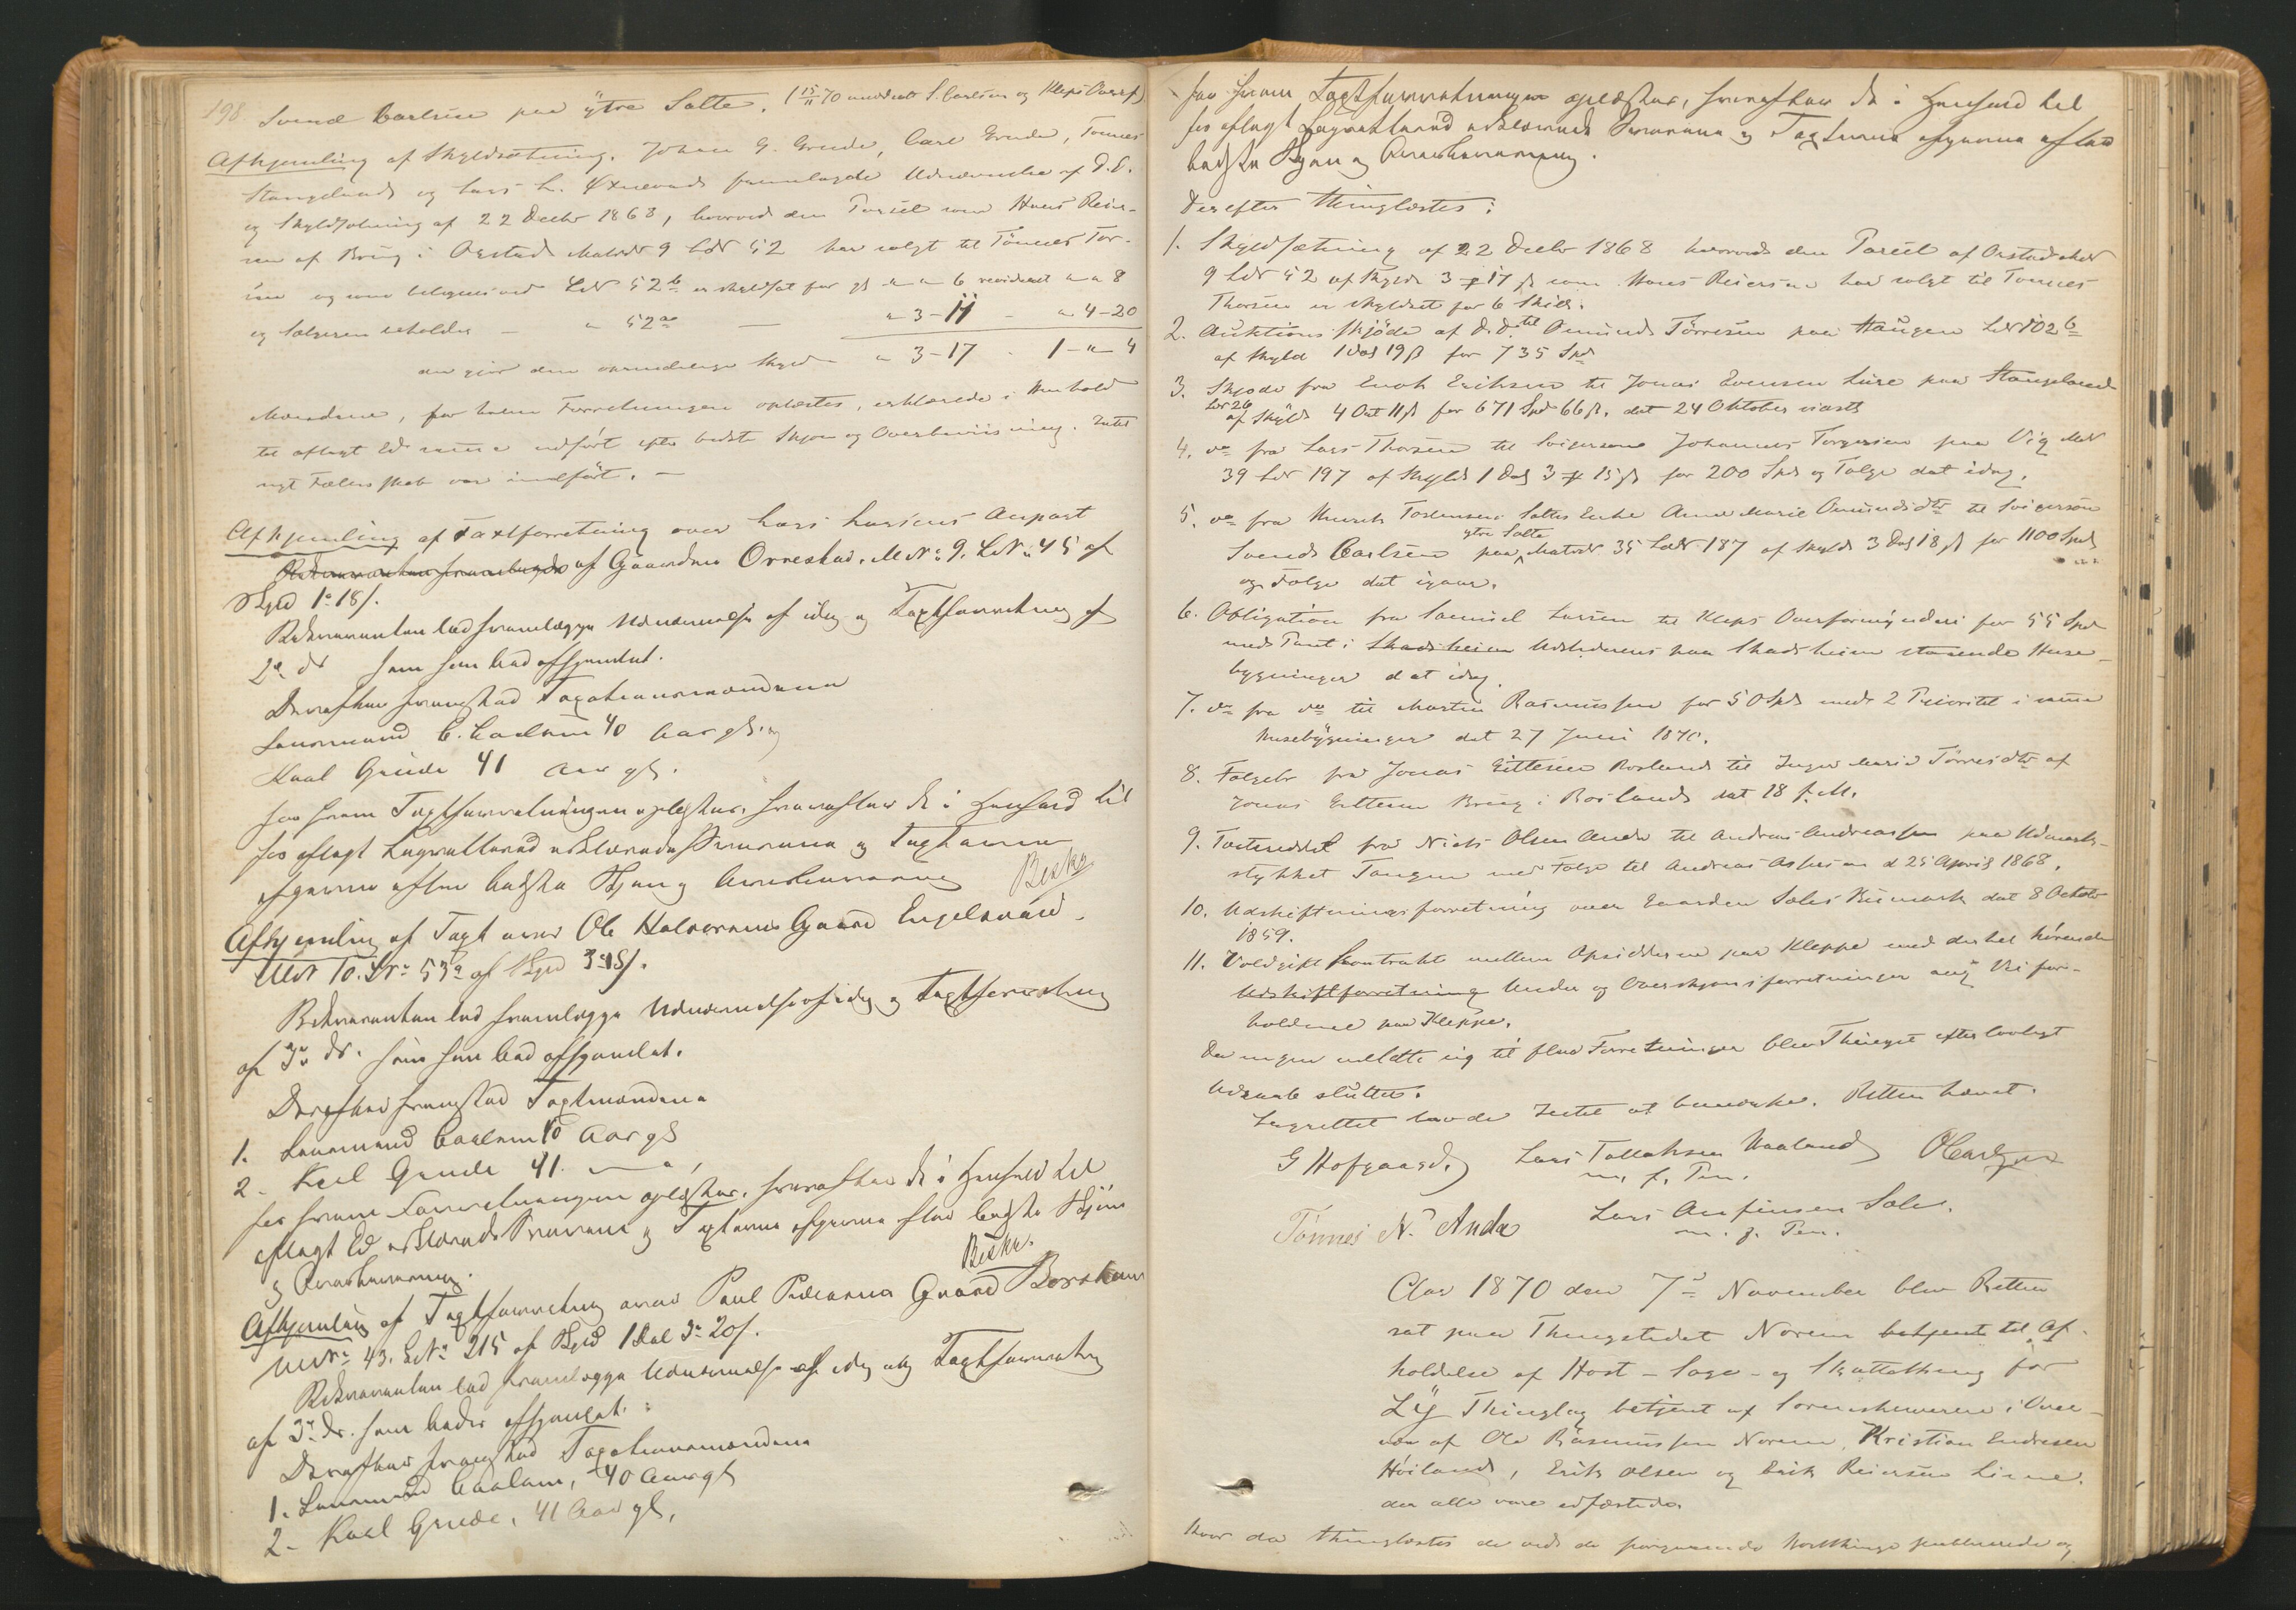 198
Svend Carlsen paa ytre Salte. (15/11 70 meddelt S. Carlsen og Kleps Overf)
Afhjemling af Skyldsætning. Johan G. Grude, Carl Grude, Tønnes
Stangeland og Lars L. Øxnevad fremlagde Udnævnelse af D. D.
og Skyldsætning af 22 Decbr 1868, hvorved den Parcel som Hans Reier-
sen af Brug i Orstad Matr 9 LNr 52 har solgt til Tönnes Tor-
sen og som betegnes med LNr 52 b er skyldsat for 6 revideret 8
og Sælgeren beholder 52 a 3-11 4-20
der gjør den oprindelige Skyld 3-17 1 - 4
Mændene, for hvem Forretningen oplæstes, erklærede i Henhold
til aflagt Ed samme udført efter bedste Skjøn og Overbeviisning. Intet
nyt Fælleskab var indført. —
Afhjemling af Taxtforretning over Lars Larsens Anpart
Rekvirenten fremlagde af Gaarden Orrestad, MNr: 9. LNr: 45 af
Skyld 1 18 ß.
Rekvirenten lod fremlægge Udnævnelse af idag og Taxtforretning af
2 ds som han bad afhjemlet.
Derefter fremstod Taxationsmændene
Lensmand C. Carlsen 40 Aar gl. og
Karl Grude 41 Aar gl.
for hvem Taxtforretningen oplæstes, hvorefter de i Henhold til
før aflagt Lagretteed erklærede Svarene og Taxterne
afgivne efter bedste Skjøn og Overbevisning Besk
Afhjemling af Taxt over Ole Halvorsens Gaard Engelsvold.
MNr 10. LNr 53 a af Skyld 3
Rekvirenten lod fremlægge Udnævnelse af idag og Taxtforretning
af 3 ds. som han bad afhjemlet.
Derefter fremstod Taxtmændene
1. Lensmand Carlsen 40 Aar gl
2. Karl Grude 41 — " — ,
for hvem Forretningen oplæstes, hvorefter de i Henhold til
aflagt Ed erklærede Svarene og Taxterne afgivne efter bedste Skjøn
og Overbevisning. Beskr.
Afhjemling af Taxtforretning over Paul Gaard
MNr 43. LNr 215 af Skyld 1 Dal 3 20 ß.
Rekvirenten lod fremlægge Udnævnelse af idag og Taxtforretning
af 3 ds. som bades afhjemlet.
Derefter fremstod Taxationsmændene
1. Lensmand Carlsen, 40 Aar gl
2. Karl Grude, 41 Aar gl,
for hvem Taxtforretningen oplæstes, hvorefter de i Henhold til
før aflagt Lagretteed erklærede Svarene og Taxterne afgivne efter
bedste Skjøn og Overbevisning.
Derefter thinglæstes:
1. Skyldsætning af 22 Decbr 1868 hvorved den Parcel af Orstad Matr
9 LNr 52 af Skyld 3 17 ß som Hans Reiersen har solgt til Tonnes
Thorsen er skyldsat for 6 Skill.
2. Auktions Skjöde af D. D. til Omund Törresen paa Haugen LNr 102 b
af Skyld 1 Dal 19 ß for 735 Spd
3. Skjøde fra Enok Eriksen til Jonas Evensen Lure paa Stangeland
LNr 26
af Skyld 4 Ort 11 ß for 671 Spd 66 ß. dat 24 Oktober sidst
4. do fra Lars Thorsen til Svigersøn Johannes Torgersen paa Vig MNr
39 LNr 197 af Skyld 1 Dal 3 15 ß for 200 Spd og Følge dat idag.
5. do fra Knud Torkensen Saltes Enke Anne Marie Omundsdtr til Svigersøn
ytre Salte
Svend Carlsen paa Matr 35 LNr 187 af Skyld 3 Dal 18 ß for 1100 Spd
og Følge dat igaar.
6. Obligation fra Samuel Larsen til Kleps Overformynderi for 55 Spd
med Pant i Skadsheim Udstederens paa Skadsheim staaende Huse-
bygninger dat idag.
7. do fra do til Martin Rasmussen for 50 Spd med 2 Prioritet i samme
Husebÿgninger dat 27 Juni 1870.
8. Følgebr fra Jonas Gittesen Rosland til Inger Maria Törresdtr af
Jonas Gittesen Brug i Rosland dat 18 f. M.
9. fra Niels Olsen Anda til Andreas Andreassen paa Udmarks-
stykket Tangen med Følge til Andreas d 25 April 1868.
10. Udskiftningsforretning over Gaarden Soles dat 8 Octobr
1859.
11. Voldgift Contrakt mellem Opsidderne paa Kleppe med dertil hørende
Udskiftforretning Under og Overskjønsforretninger ang Vei for-
holdene paa Kleppe.
Da ingen meldte sig til flere Forretninger blev Thinget efter lovligt
Udraab sluttet.
Lagrettet havde Intet at bemærke. Retten hævet.
G Hofgaard. Lars Tollaksen Vaaland OCarlsen
m. f. Pen.
Tönnes N. Anda Lars Anfinsen Sole.
m. f. Pen.
Aar 1870 den 7de November blev Retten
sat paa Thingstedet Norem betjent til Af-
holdelse af Høst - Sage - og Skattething for
Lÿ Thinglag betjent af Sorenskriveren i Over-
vær af Ole Rasmussen Norem, Kristian Endresen
Höiland, Erik Olsen og Erik Reiersen Line.
der alle vare edfæstede.
Hvor da thinglæstes de ved de foregaaende Høstthinge publicerede og